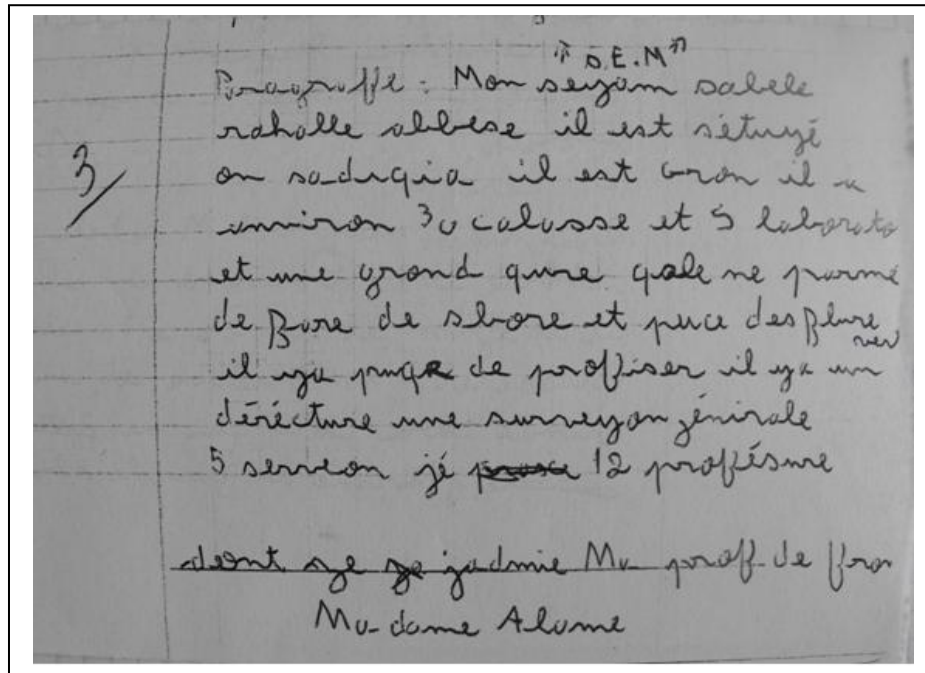 "S.E.M"
Paragraffe : Mon seyam sabele
rahalle abbese il est sétuyé
on sadiqia il est gron il a
anniron 30 calasse et 5 laborato
et une grond qure qale ne parme
de fare de sbore et puce des flure
ver
3/
il ya puqe de profiser il ya un
dérécture une surveyon jénirale
5 serveon jé 12 profésure
dont je jadmie Ma proff de fron
Madame Alame